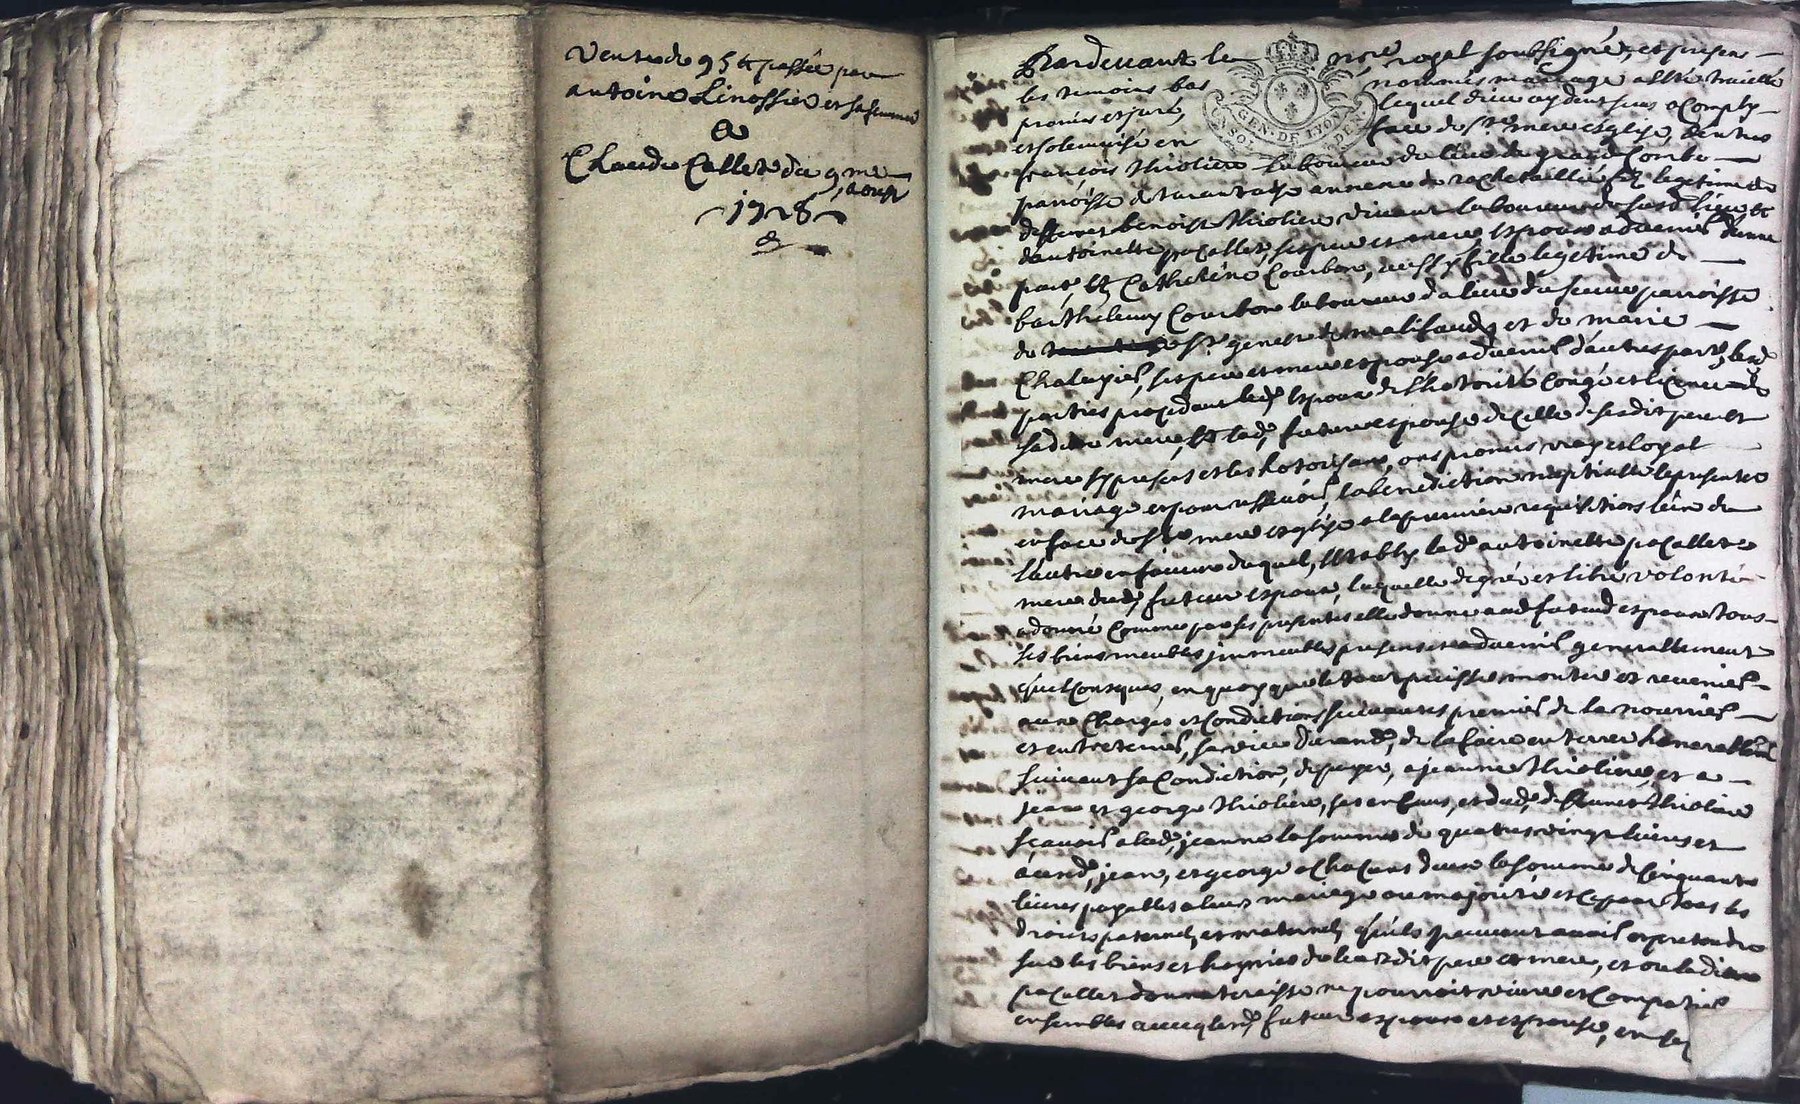 Vente de 95 lt passée par
antoine Linossier et sa femme
a
Claude Collet du 9me
aoust
1728
Pardevant le nore royal soubsigné, et presens
les temoins bas nommes mariage a esté traitté
promis et juré, lequel dieu aydant sera accomply
et solemnisé en face de Ste mere esglise, entre
françois thioliere laboureur du lieu de grand Combe
parroisse de tarantaise annexe de rochetaillié, filz legitime de
deffunct benoist thioliere vivant laboureur dudit lieu et
d'antoinette pacallet, ses pere et mere espoux advenir d'une
part, et Catherine Courbon, aussy fille legitime de
barthelemy Courbon laboureur du lieu du parroisse
de St genest de malifaud, et de marie
Chaleyer, ses pere et mere espouse advenir d'autre part, lesd
parties procedant led espoux de l'hotorité congé et licence de
sadite mere, et lad future espouse de celle de sesdit pere et
mere sy presens et les hotorisans, ont promis vray et loyal
mariage et pour ressevoir la benediction nuptialle se presenter
en face de Ste mere esglise a la premiere requisition l'un de
l'autre en faveur duquel, establye lad antoinette pacallet
mere dud futur espoux, laquelle de gré et libre volonté
a donné comme par ses presentes elle donne aud futur espoux tous
ses biens meubles immeubles presens et advenir generallement
quelconques, en quoy que le tout puisse monter et revenir
aux charges et condictions suivantes premier de la nourrir
et entretenir, sa vie durand, de la faire enterrer honnorablement
suivant sa condiction, de payer, a jeanne thioliere, et a
jean et george thioliere, ses enfans, et dud deffunct thioliere
sçavoir a lad jeanne la somme de quatre vingt livres et
ausd jean, et george a chacuns d'eux la somme de cinquante
livres payables a leur mariage ou majorité et ce pour tous les
droits paternels et maternels qu'ils peuvent avoir et pretendre
sur les biens et hoyries de leursdit pere et mere, et ou ladite
pacallet donnateresse ne pourroit vivre et compatir
ensembles avecq lesd futur espoux et espouse, en se